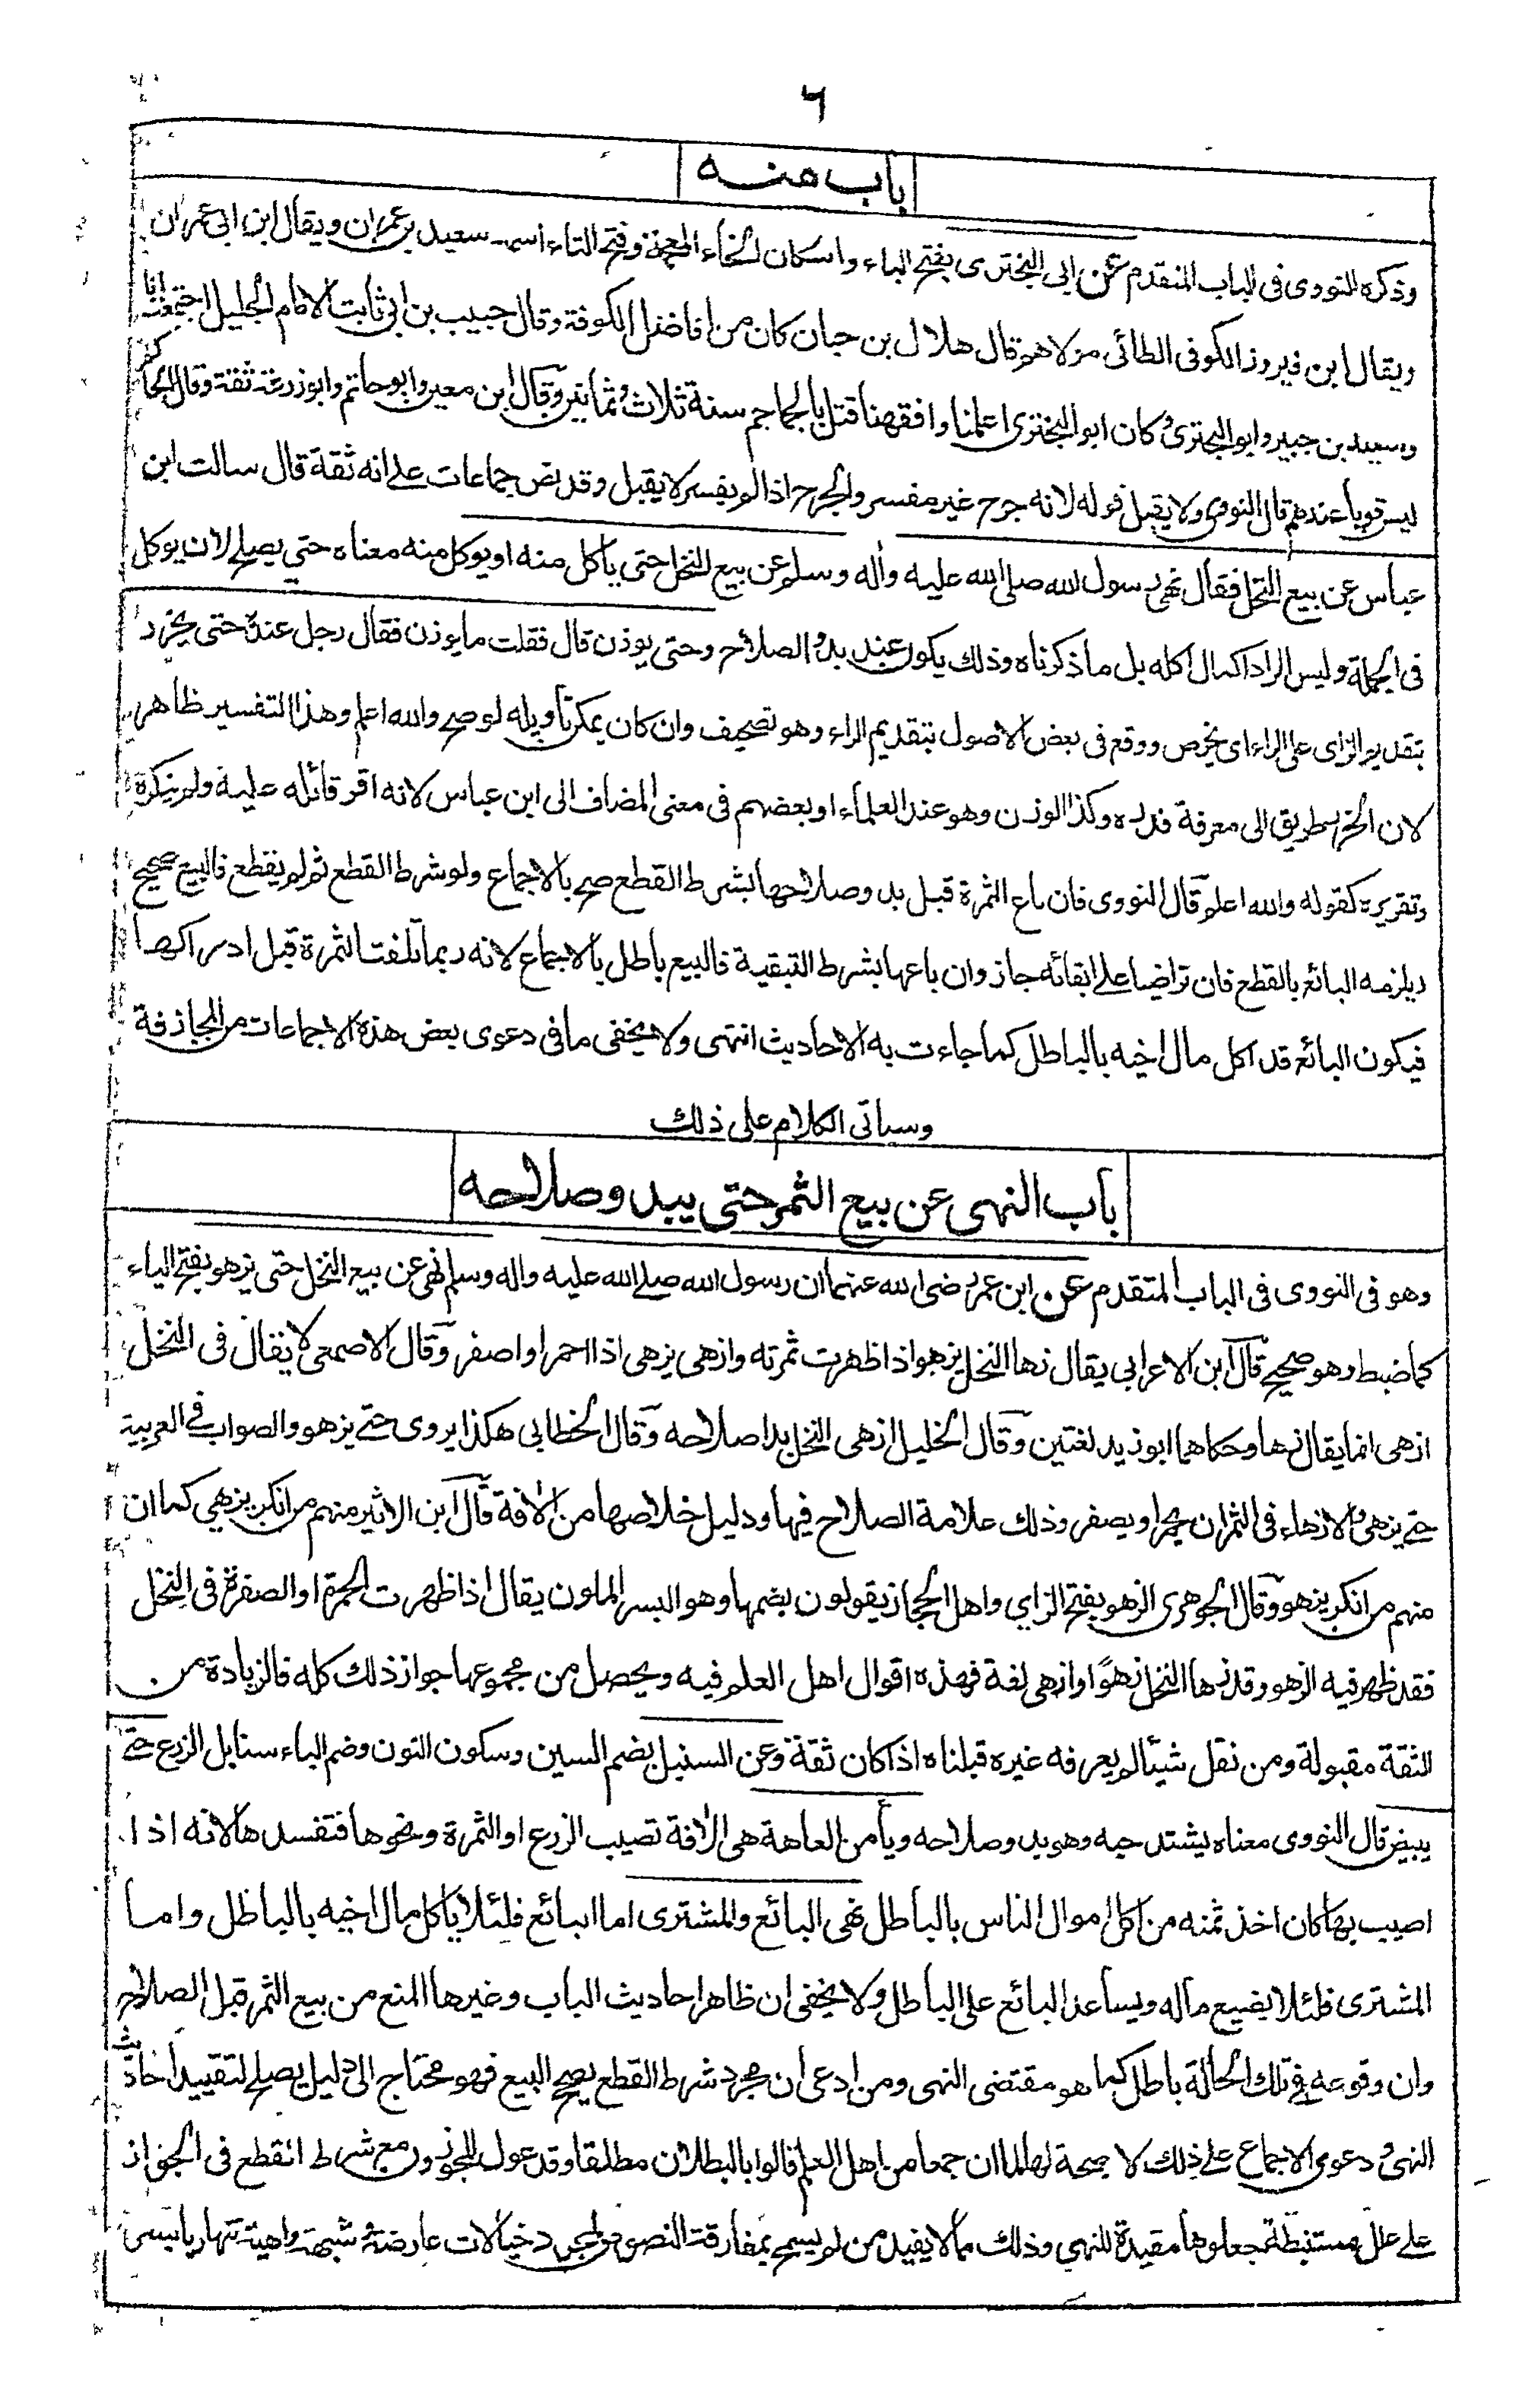 ٦
باب منه
وذكره النووى فى الباب المتقدم عن ابى البخترى بفتح الباء واسكان الخاء المعجمة وفتح التاء اسمه سعيد بن عمران ويقال ابن ابى عمران
ويقال ابن فيروز الكوفى الطائى مولاهم قال هلال بن حبان كان من افاضل الكوفة وقال حبيب بن ابى ثابت الامام الجليل اجتمعت انا
وسعيد بن جبير وابو البخترى وكان ابو البخترى اعلمنا وافقهنا قتل بالجماجم سنة ثلاث وثمانين وقال ابن معين وابو حاتم وابو زرعة ثقة وقال الحاكم
ليس قويا عندهم قال النووى ولا يقبل قوله لانه جرح غير مفسر والجرح اذا لم يفسر لا يقبل وقد نص جماعات على انه ثقة قال سالت ابن
عباس عن بيع النخل فقال نهى رسول الله صلى الله عليه واٰله وسلم عن بيع النخل حتى ياكل منه او يوكل منه معناه حتى يصلح لان يوكل
فى الجملة وليس المراد اكمال اكله بل ما ذكرناه وذلك يكون عند بدو الصلاح وحتى يوذن قال فقلت ما يوذن فقال رجل عنده حتى يحزر
بتقديم الزاى على الراء اى يخرص ووقع فى بعض الاصول بتقديم الراء وهو تصحيف وان كان يمكن تاويله لو صح والله اعلم وهذا التفسير ظاهر
لان الحزر طريق الى معرفة قدره وكذا الوزن وهو عند العلماء او بعضهم فى معنى المضاف الى ابن عباس لانه اقر قائله عليه ولم ينكره
وتقريره كقوله والله اعلم قال النووى فان باع الثمرة قبل بدو صلاحها بشرط القطع صح بالاجماع ولو شرط القطع ثم لم يقطع فالبيع صحيح
ويلزمه البائع بالقطع فان تراضيا على ابقائه جاز وان باعها بشرط التبقية فالبيع باطل بالاجماع لانه ربما تلفت الثمرة قبل ادراكها
فيكون البائع قد اكل مال اخيه بالباطل كما جاءت به الاحاديث انتهى ولا يخفى ما فى دعوى بعض هذه الاجماعات من المجازفة
وسياتى الكلام على ذلك
باب النهى عن بيع الثمر حتى يبدو صلاحه
وهو فى النووى فى الباب المتقدم عن ابن عمر رضى الله عنهما ان رسول الله صلى الله عليه واله وسلم نهى عن بيع النخل حتى يزهو بفتح الياء
كما ضبط وهو صحيح قال ابن الاعرابي يقال زها النخل يزهو اذا ظهرت ثمرته وازهى يزهى اذا احمر او اصفر وقال الاصمعى لا يقال فى النخل
ازهى انما يقال زها وحكاهما ابو زيد لغتين وقال الخليل ازهى النخل بدا صلاحه وقال الخطابى هكذا يروى حتى يزهو والصواب فى العربية
حتى يزهى والازهاء فى الثمر ان يحمر او يصفر وذلك علامة الصلاح فيها ودليل خلاصها من الاٰفة قال ابن الاثير منهم من انكر يزهي كما ان
منهم من انكر يزهو وقال الجوهرى الزهو بفتح الزاي واهل الحجاز يقولون بضمها وهو البسر الملون يقال اذا ظهرت الحمرة او الصفرة فى النخل
فقد ظهر فيه الزهو وقد زها النخل زهوًا وازهى لغة فهذه اقوال اهل العلم فيه ويحصل من مجموعها جواز ذلك كله فالزيادة من
الثقة مقبولة ومن نقل شيئا لم يعرفه غيره قبلناه اذا كان ثقة وعن السنبل بضم السين وسكون النون وضم الباء سنابل الزرع حتى
يبيض قال النووى معناه يشتد حبه وهو بدو صلاحه ويأمن العاهة هى الاٰفة تصيب الزرع او الثمرة ونحوها فتفسدها لانه اذا
اصيب بها كان اخذ ثمنه من اكل اموال الناس بالباطل نهى البائع والمشترى اما البائع فلئلا ياكل مال اخيه بالباطل واما
المشترى فلئلا يضيع ماله ويساعد البائع على الباطل ولا يخفى ان ظاهر احاديث الباب وغيرها المنع من بيع الثمر قبل الصلاح
وان وقوعه فى تلك الحالة باطل كما هو مقتضى النهى ومن ادعى ان مجرد شرط القطع يصح البيع فهو محتاج الى دليل يصلح لتقييد احاديث
النهى ودعوى الاجماع على ذلك لا صحة لها لما ان جمعا من اهل العلم قالوا بالبطلان مطلقا وقد عول المجوزون مع شرط القطع فى الجواز
على علل مستنبطة جعلوها مقيدة للنهي وذلك مما لا يفيد من لم يسمح بمفارقة النصوص لمجرد خيالات عارضة وشبهة واهية تنهار بايسر